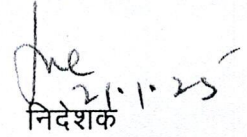 21.1.25
निदेशक